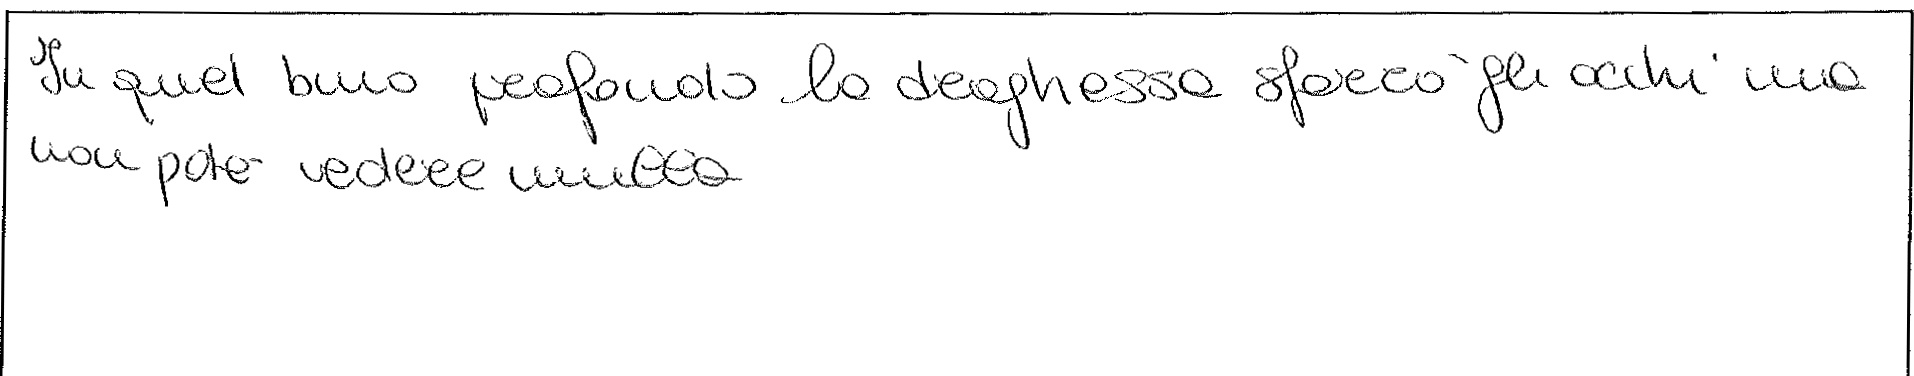 In quel buio profondo la draghessa sbarrò gli occhi ma
non poté vedere nulla